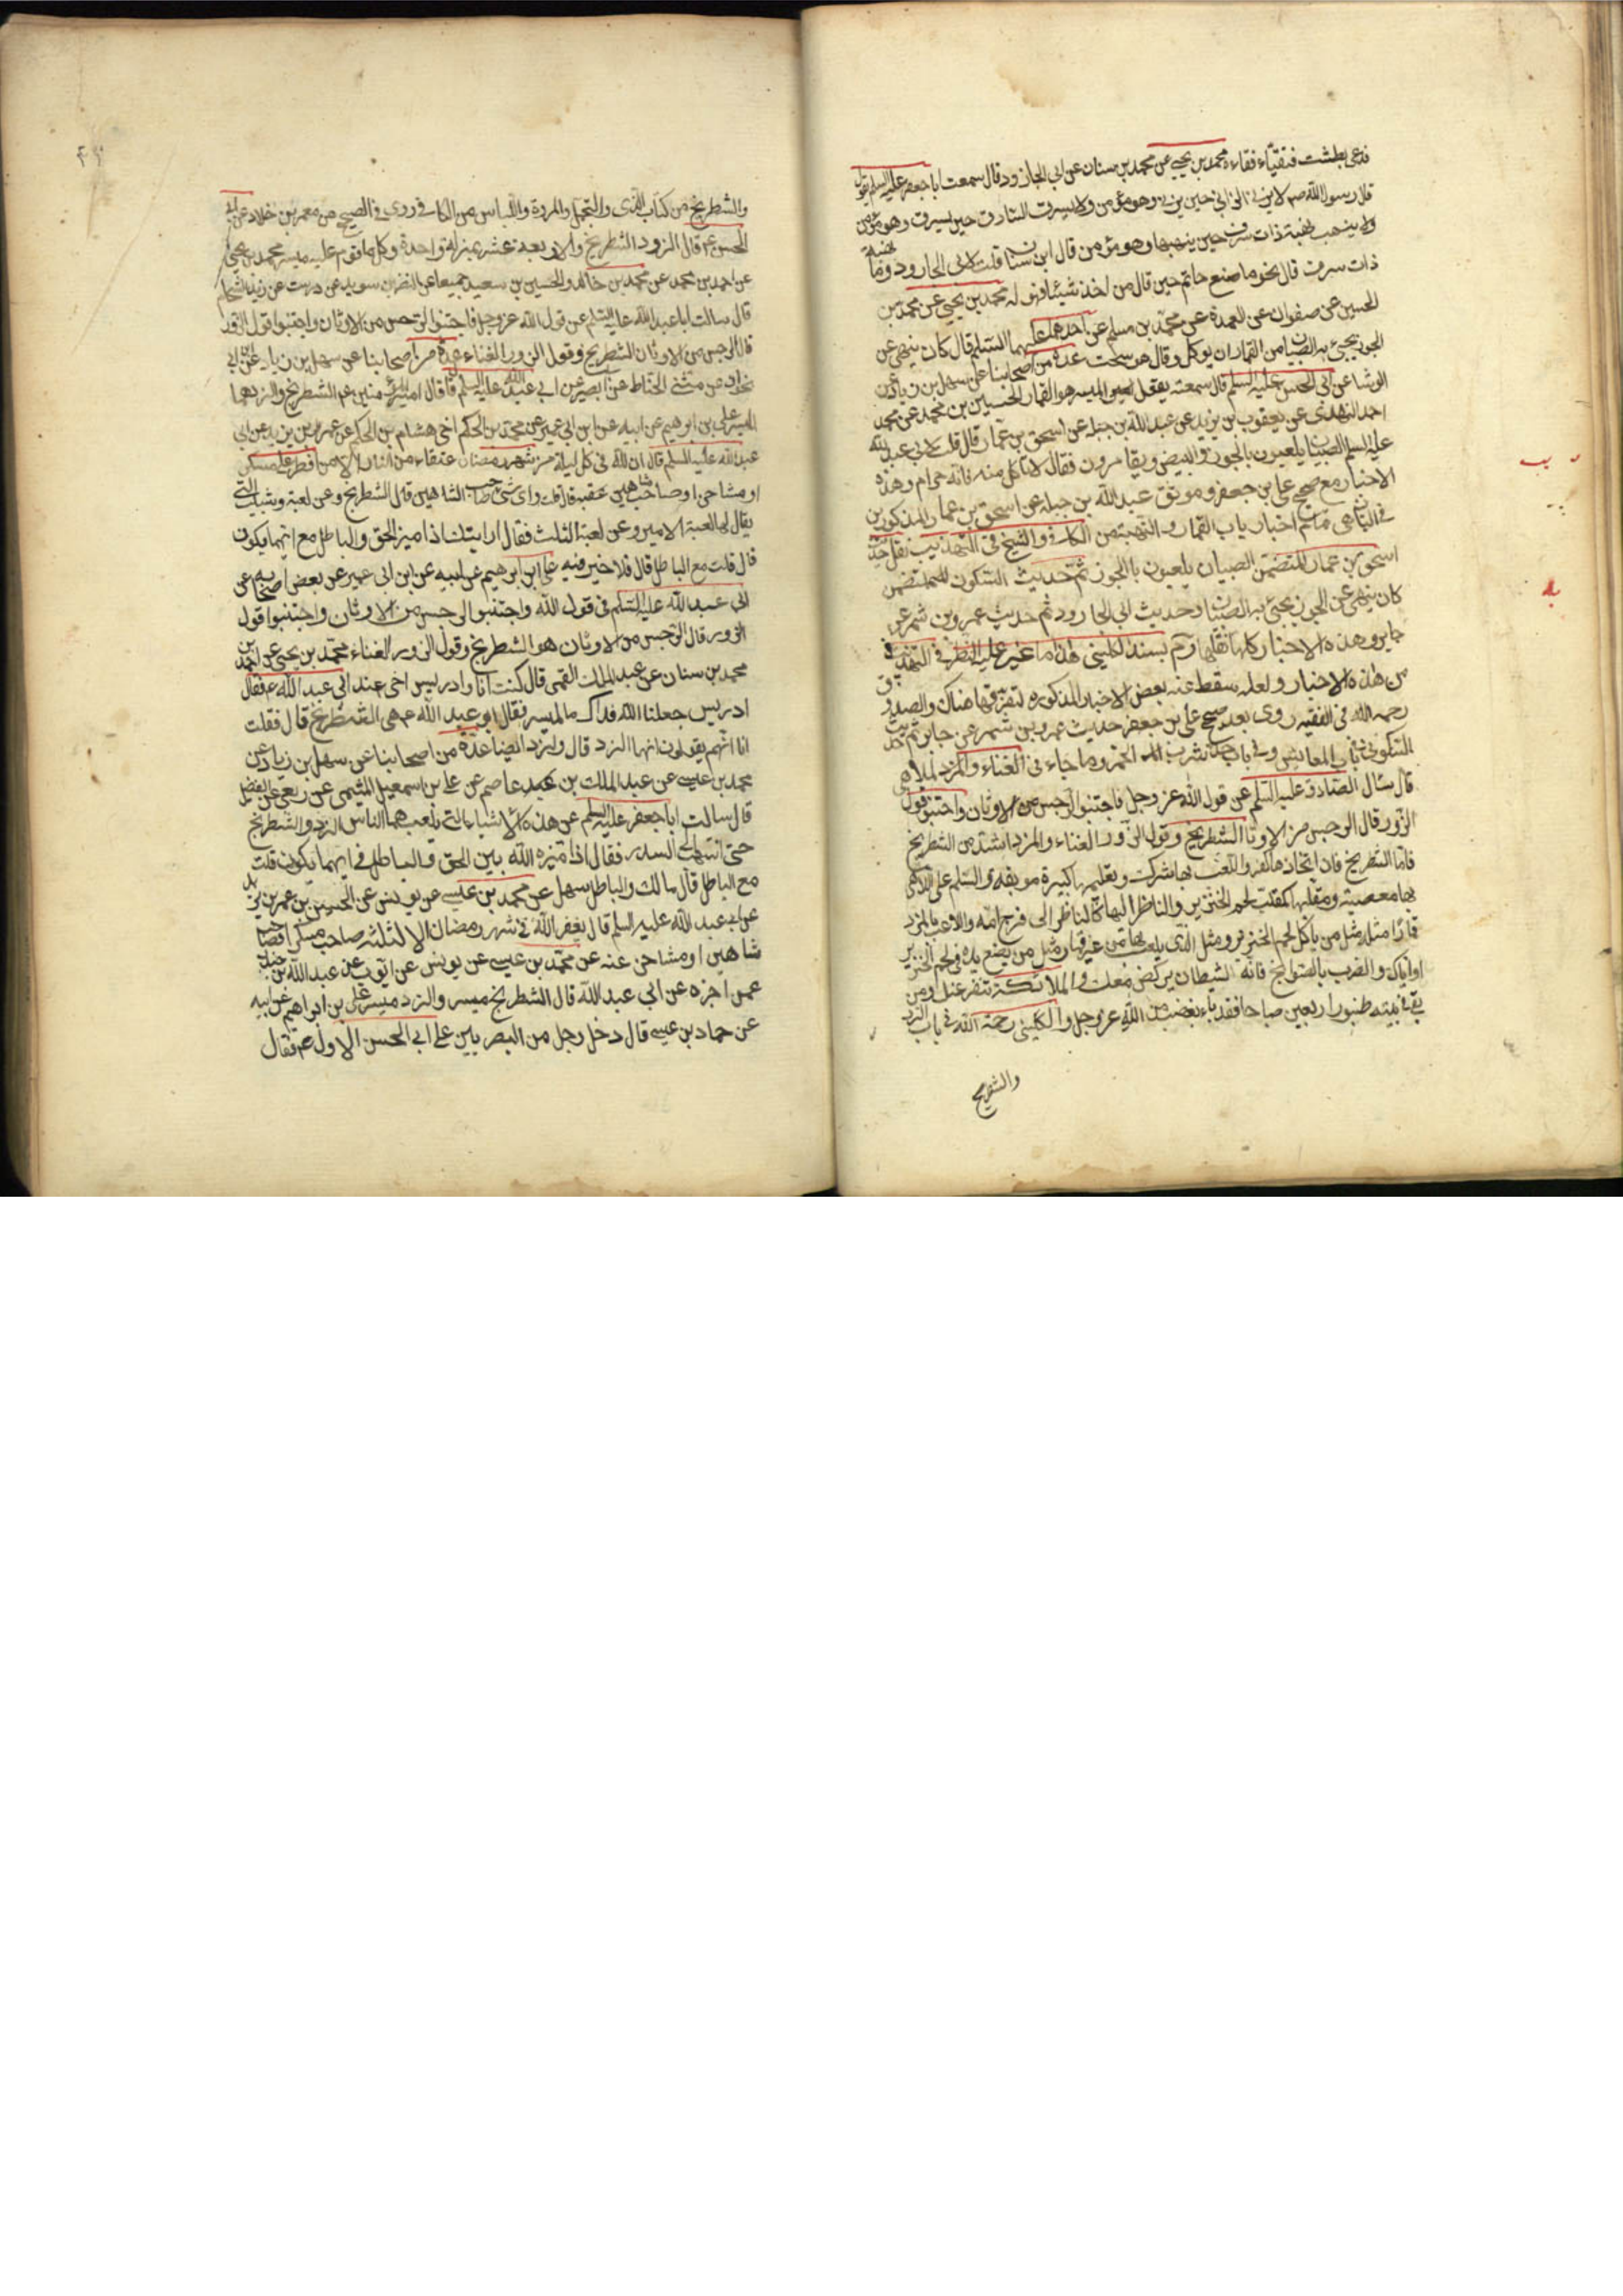 فدعى بطشت فتقيّاء فقاءه محمد بن يحيى عن محمد بن سنان عن ابي الجارود قال سمعت ابا جعفر عليه السلم يقول
قال رسول الله صم لا يزني الزاني حين يزني وهو مؤمن ولا يسرق السارق حين يسرق وهو مؤمن
ولا ينهب نهبة ذات شرف حين ينهبها وهو مؤمن قال ابن سنان قلت لابي الجارود وما نهبة
ذات شرف قال نحو ما صنع حاتم حين قال من اخذ شيئا فهو له محمد بن يحيى عن محمد بن
الحسين عن صفوان عن العلا عن محمد بن مسلم عن احدهما عليهما السلم قال كان ينهى عن
الجوز يجيئ به الصبيان من القمار ان يوكل وقال هو سحت عدة من اصحابنا عن سهل بن زياد عن
الوشا عن ابي الحسن عليه السلم قال سمعته يقول الميسر هو القمار الحسين بن محمد عن محمد بن
احمد النهدى عن يعقوب بن يزيد عن عبد الله بن جبله عن اسحق بن عمار قال قلت لابي عبد الله
عليه السلم الصبيان يلعبون بالجوز والبيض ويقامرون فقال لا تاكل منه فانه حرام وهذه
الاخبار مع صحيح على بن جعفر وموثق عبد الله بن جبله عن اسحق بن عمار المذكورين
في الثاني هي تمام اخبار باب القمار والنهبة من الكافى والشيخ فى التهذيب نقل حديث
اسحق بن عمار المتضمن الصبيان يلعبون بالجوز ثم حديث السكونى المتضمن
كان ينهى عن الجوز يجيئ به الصبيان وحديث ابي الجارود ثم حديث عمرو بن شمر عن
جابر وهذه الاخبار كلها نقلها بسند الكليني هذا ما عثر عليه النظر فى التهذيب
من هذه الاخبار ولعله سقط عنه بعض الاخبار المذكوره لتفرقها هناك والصدوق
رحمه الله فى الفقيه روى بعد صحيح على بن جعفر حديث عمرو بن شمر عن جابر ثم حديث
السكونى فى باب المعايش وفى باب حد شرب الخمر وما جاء فى الغناء والملاهى
قال سئال الصادق عليه السلم عن قول الله عز وجل فاجتنبوا الرجس من الاوثان واجتنبوا قول
الزور قال الرجس من الاوثان الشطرنج وقول الزور الغناء والنرد اشد من الشطرنج
فاما الشطرنج فان اتخاذها كفر واللعب بها شرك وتعليمها كبيرة موبقه والسلم على اللاهى
بها معصية ومقلبها كمقلب لحم الخنزير والناظر اليها كالناظر الى فرج امه واللاعب بالنرد
قمارا مثله مثل من ياكل لحم الخنزير ومثل الذى يلعب بها من غير قمار مثل من يضع يده في لحم الخنزير
او اياك والضرب بالصوانج فانه الشيطان يركض معك والملائكة تنفر عنك ومن
بقى فى بيته طنبور اربعين صباحا فقد باء بغضب من الله عز وجل والكليني رحمة الله فى باب النرد
والشطرنج
٤٩
والشطرنج من كتاب الزى والتجمل والمروة واللباس من الكافى روى فى الصحيح عن معمر بن خلاد عن ابي
الحسن ع قال النرد والشطرنج والاربعة عشر بمنزلة واحدة وكل ما قوم عليه ميسر محمد بن يحيى
عن احمد بن محمد عن محمد بن خالد والحسين بن سعيد جميعا عن النضر بن سويد عن درست عن زيد الشحام
قال سالت ابا عبد الله عليه السلم عن قول الله عز وجل فاجتنبوا الرجس من الاوثان واجتنبوا قول الزور
قال الرجس من الاوثان الشطرنج وقول الزور الغناء عدة من اصحابنا عن سهل بن زياد عن ابن ابي
نجران عن مثنى الحناط عن ابى بصير عن ابي عبد الله عليه السلم قال قال امير المؤمنين ع الشطرنج والنرد هما
الميسر على بن ابرهيم عن ابيه عن ابن ابي عمير عن محمد بن الحكم اخى هشام بن الحكم عن عمر بن يزيد عن ابي
عبد الله عليه السلم قال ان لله فى كل ليلة من شهر رمضان عتقاء من النار الا من افطر على مسكر
او مشاحن او صاحب شاهين قال قلت واى شئ صاحب الشاهين قال الشطرنج وعن لعبة شبيب التى
يقال لها لعبة الامير وعن لعبة الثلث فقال ارايتك اذا ميز الحق والباطل مع ايهما يكون
قال قلت مع الباطل قال فلا خير فيه على ابن ابرهيم عن ابيه عن ابن ابي عمير عن بعض اصحابه عن
ابي عبد الله عليه السلم فى قول الله واجتنبوا الرجس من الاوثان واجتنبوا قول
الزور قال الرجس من الاوثان هو الشطرنج وقول الزور الغناء محمد بن يحيى عن احمد بن
محمد بن سنان عن عبد الملك القمى قال كنت انا وادريس اخى عند ابي عبد الله ع فقال
ادريس جعلنا الله فداك ما الميسر فقال ابو عبد الله ع هى الشطرنج قال فقلت
انا انهم يقولون انها النرد قال والنرد ايضا عدة من اصحابنا عن سهل بن زياد عن
محمد بن عيسى عن عبد الملك بن عاصم عن على بن اسمعيل الميثمى عن ربعى عن الفضيل
قال سالت ابا جعفر عليه السلم عن هذه الاشياء التى يلعب بها الناس النرد والشطرنج
حتى انتهيت الى السدر فقال اذا ميز الله بين الحق والباطل فى ايهما يكون قلت
مع الباطل قال مالك والباطل سهل عن محمد بن عيسى عن يونس عن الحسين بن عمر بن يزيد
عن ابى عبد الله عليه السلم قال يغفر الله فى شهر رمضان الا لثلثه صاحب مسكر او صاحب
شاهين او مشاحن عنه عن محمد بن عيسى عن يونس عن ايوب عن عبد الله بن جندب
عمن اخبره عن ابي عبد الله قال الشطرنج ميسر والنرد ميسر على بن ابراهيم عن ابيه
عن حماد بن عيسى قال دخل رجل من البصريين على ابى الحسن الاول ع فقال